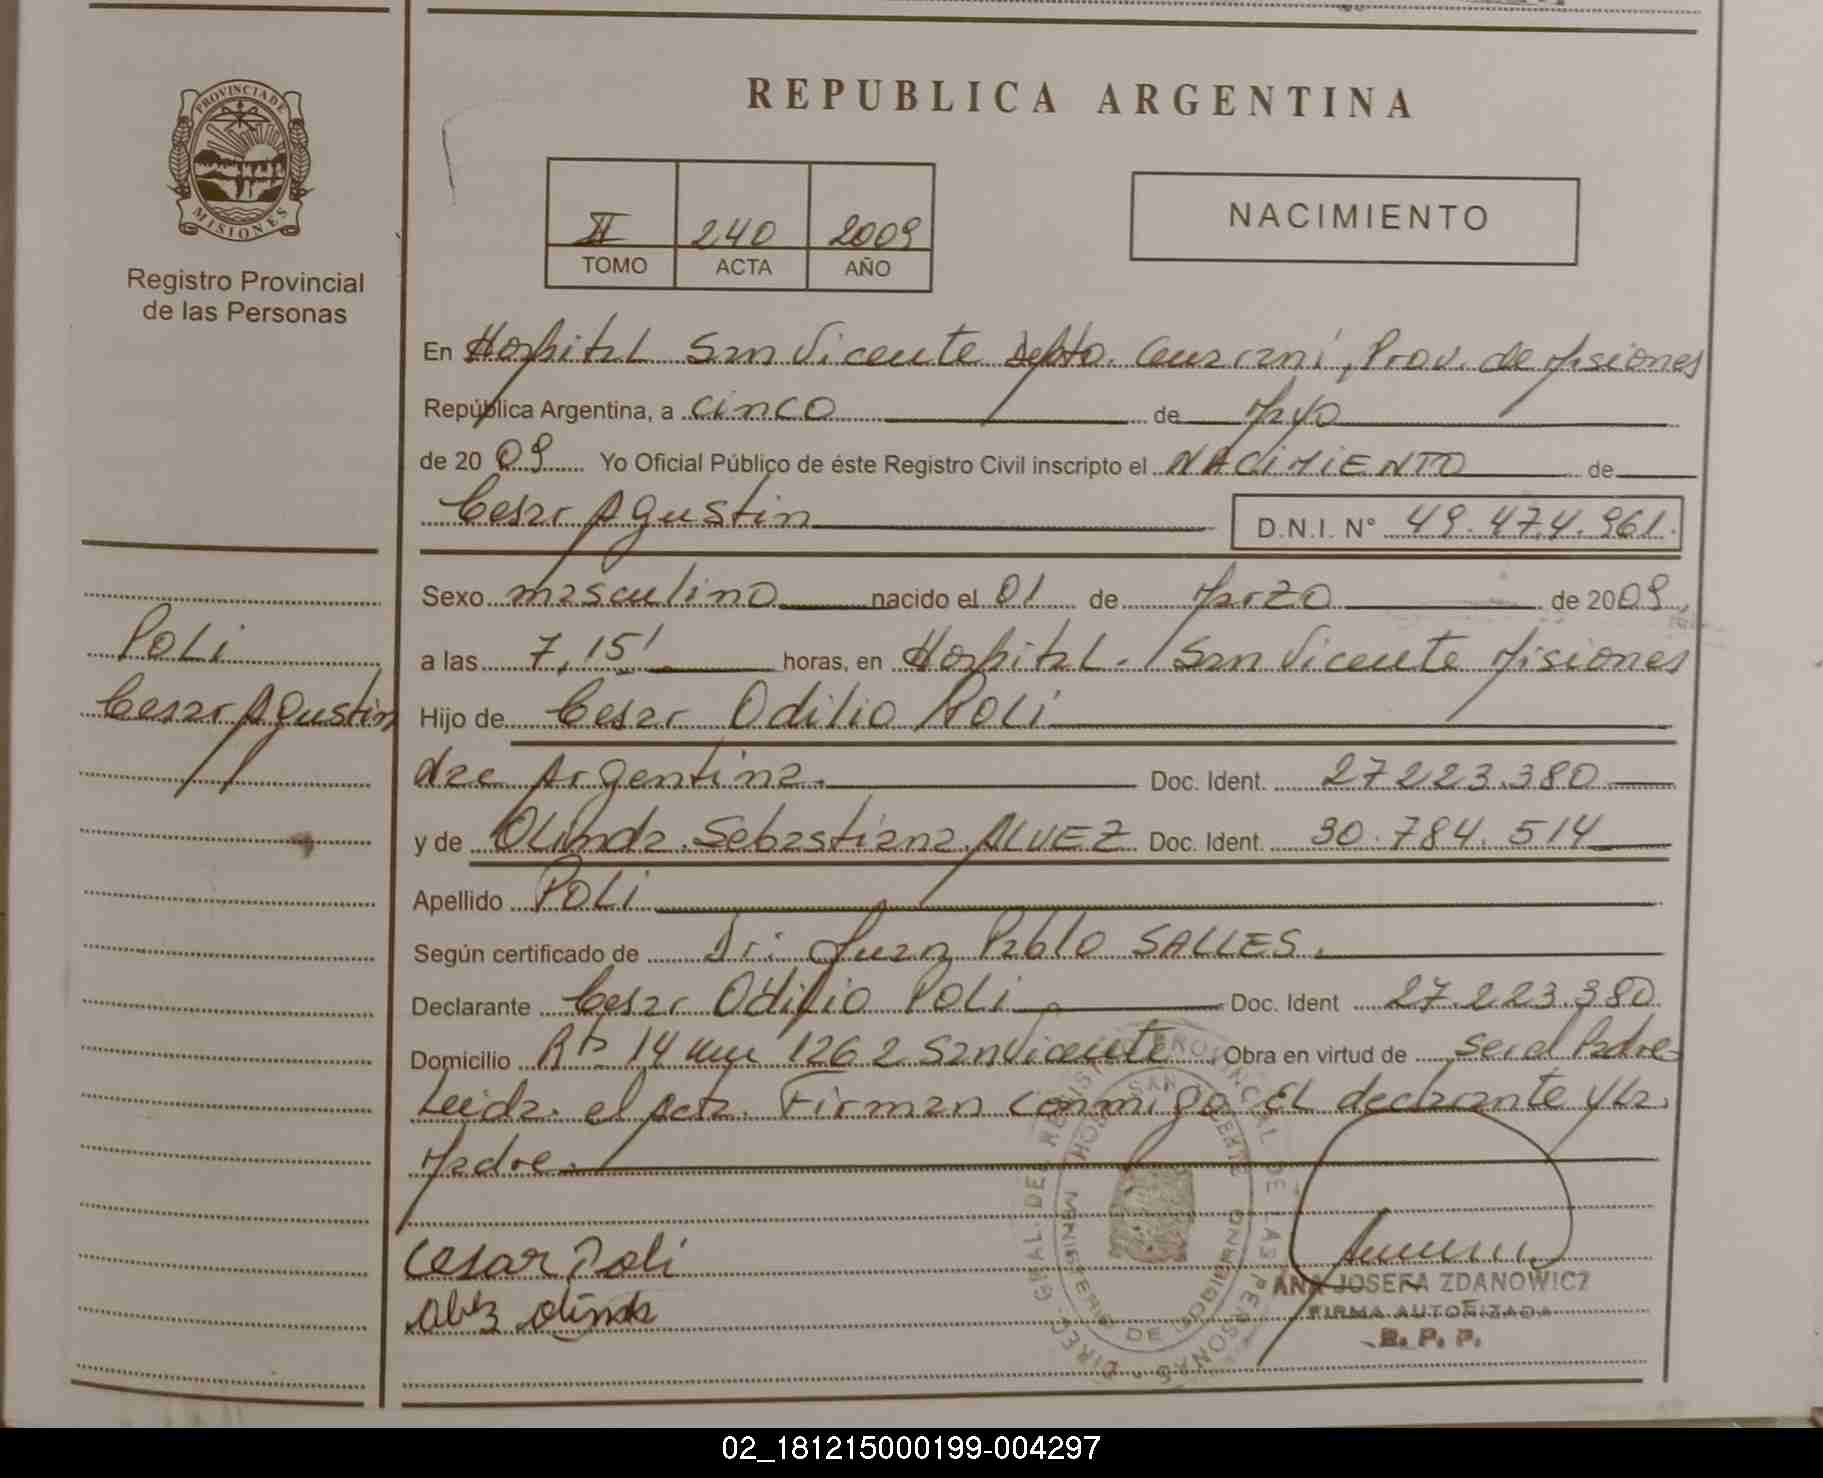 REPUBLICA ARGENTINA
PROVINCIA DE
MISIONES
Registro Provincial
de las Personas
II 240 2009
TOMO ACTA AÑO
NACIMIENTO
En Hospital San Vicente Depto. Guaraní, Prov. de Misiones
República Argentina, a cinco de Mayo
de 2009 Yo Oficial Público de éste Registro Civil inscripto el NACIMIENTO de
Cesar Agustin D.N.I. N° 49.474.961.
Sexo masculino nacido el 01 de Marzo de 2009
a las 7,15' horas, en Hospital. San Vicente Misiones
POLI
Cesar Agustin
Hijo de Cesar Odilio POLI
Argentina. Doc. Ident. 27.223.380
y de OLINDA Sebastiana ALVEZ Doc. Ident. 30.784.514
Apellido POLI
Según certificado de Dr. Juan Pablo SALLES.
Declarante Cesar Odilio POLI Doc. Ident 27.223.380
Domicilio Rta 14 km 1262 San Vicente Obra en virtud de ser el Padre
Leida el Acta. Firman conmigo EL declarante y La
Madre.
Cesar Poli
olinda
ANA JOSEFA ZDANOWICZ
FIRMA AUTORIZADA
R. P. P.
02_181215000199-004297